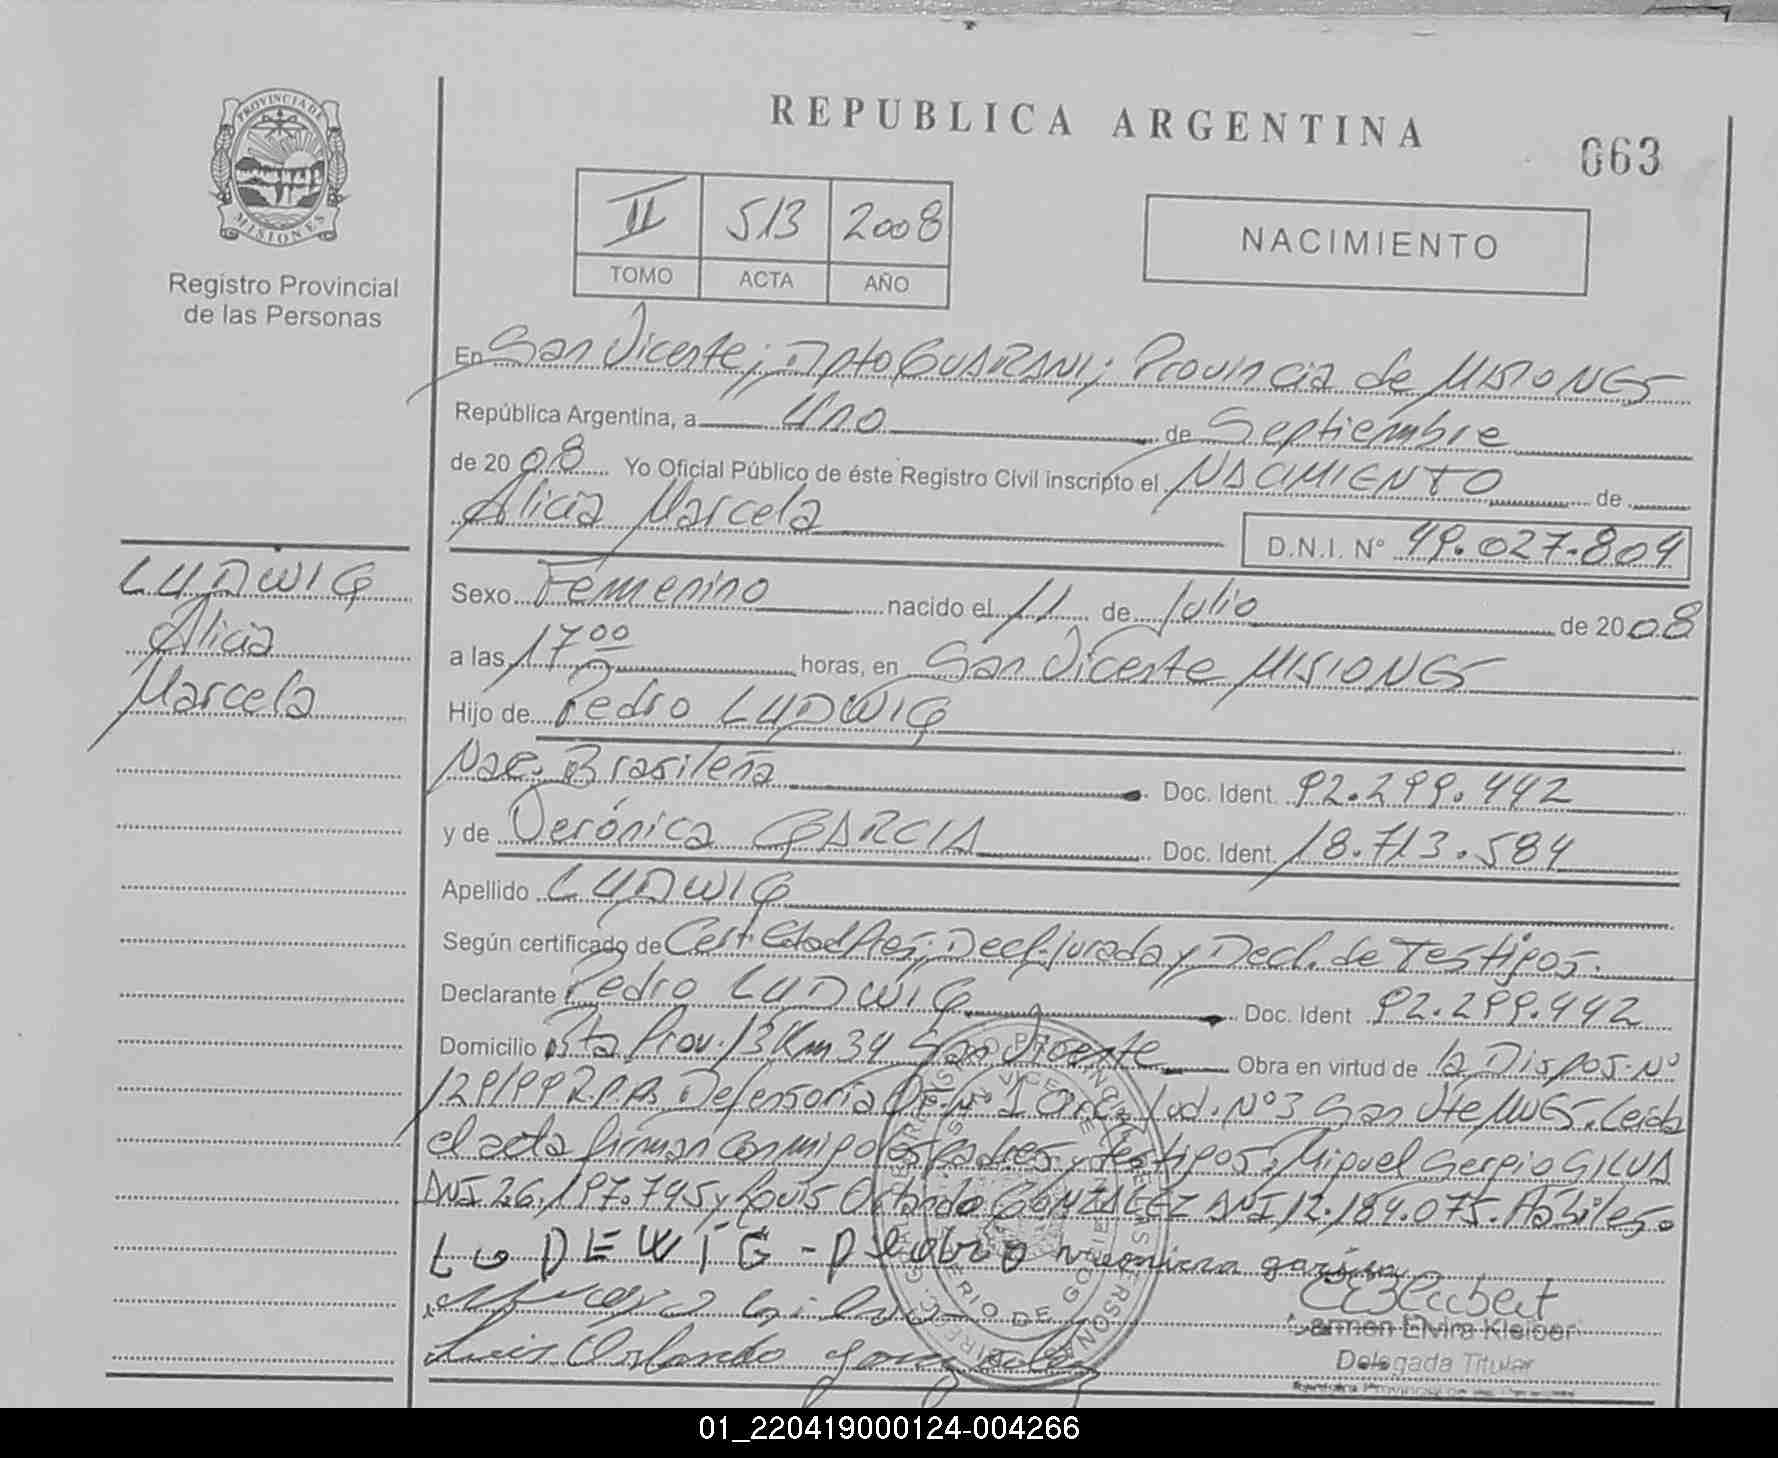 REPUBLICA ARGENTINA
063
PROVINCIA DE
MISIONES
Registro Provincial
de las Personas
II 513 2008
TOMO ACTA AÑO
NACIMIENTO
En San Vicente; Dpto GUARANI; Provincia de MISIONES
República Argentina, a Uno de Septiembre
de 2008 Yo Oficial Público de éste Registro Civil inscripto el NACIMIENTO de
Alicia Marcela
D.N.I. Nº 49.027.804
LUDWIG
Alicia
Marcela
Sexo Femenino nacido el 11 de Julio de 2008
a las 17 00 horas, en San Vicente MISIONES
Hijo de Pedro LUDWIG
Nac. Brasileña Doc. Ident. 92.299.442
y de Verónica GARCIA Doc. Ident. 18.713.584
Apellido LUDWIG
Según certificado de Cert. Edad Pres; Decl. jurada y Decl. de Testigos.
Declarante Pedro LUDWIG Doc. Ident 92.299.442
Domicilio Rta Prov. 13 Km 34 San Vicente Obra en virtud de la Dispos. Nº
129/99 R.P.P. Defensoria Of. Nº 1 Circ. Jud. Nº 3 San Vte MNES. Leida
el acta firman conmigo los padres y testigos: Miguel Sergio SILVA
DNI 26.197.745 y Louis Orlando GONZALEZ DNI 12.184.075. Hábiles.
LUDEWIG - Pedro garcia
Luis Orlando gonzalez
Carmen Elvira Kleiber
Delegada Titular
01_220419000124-004266